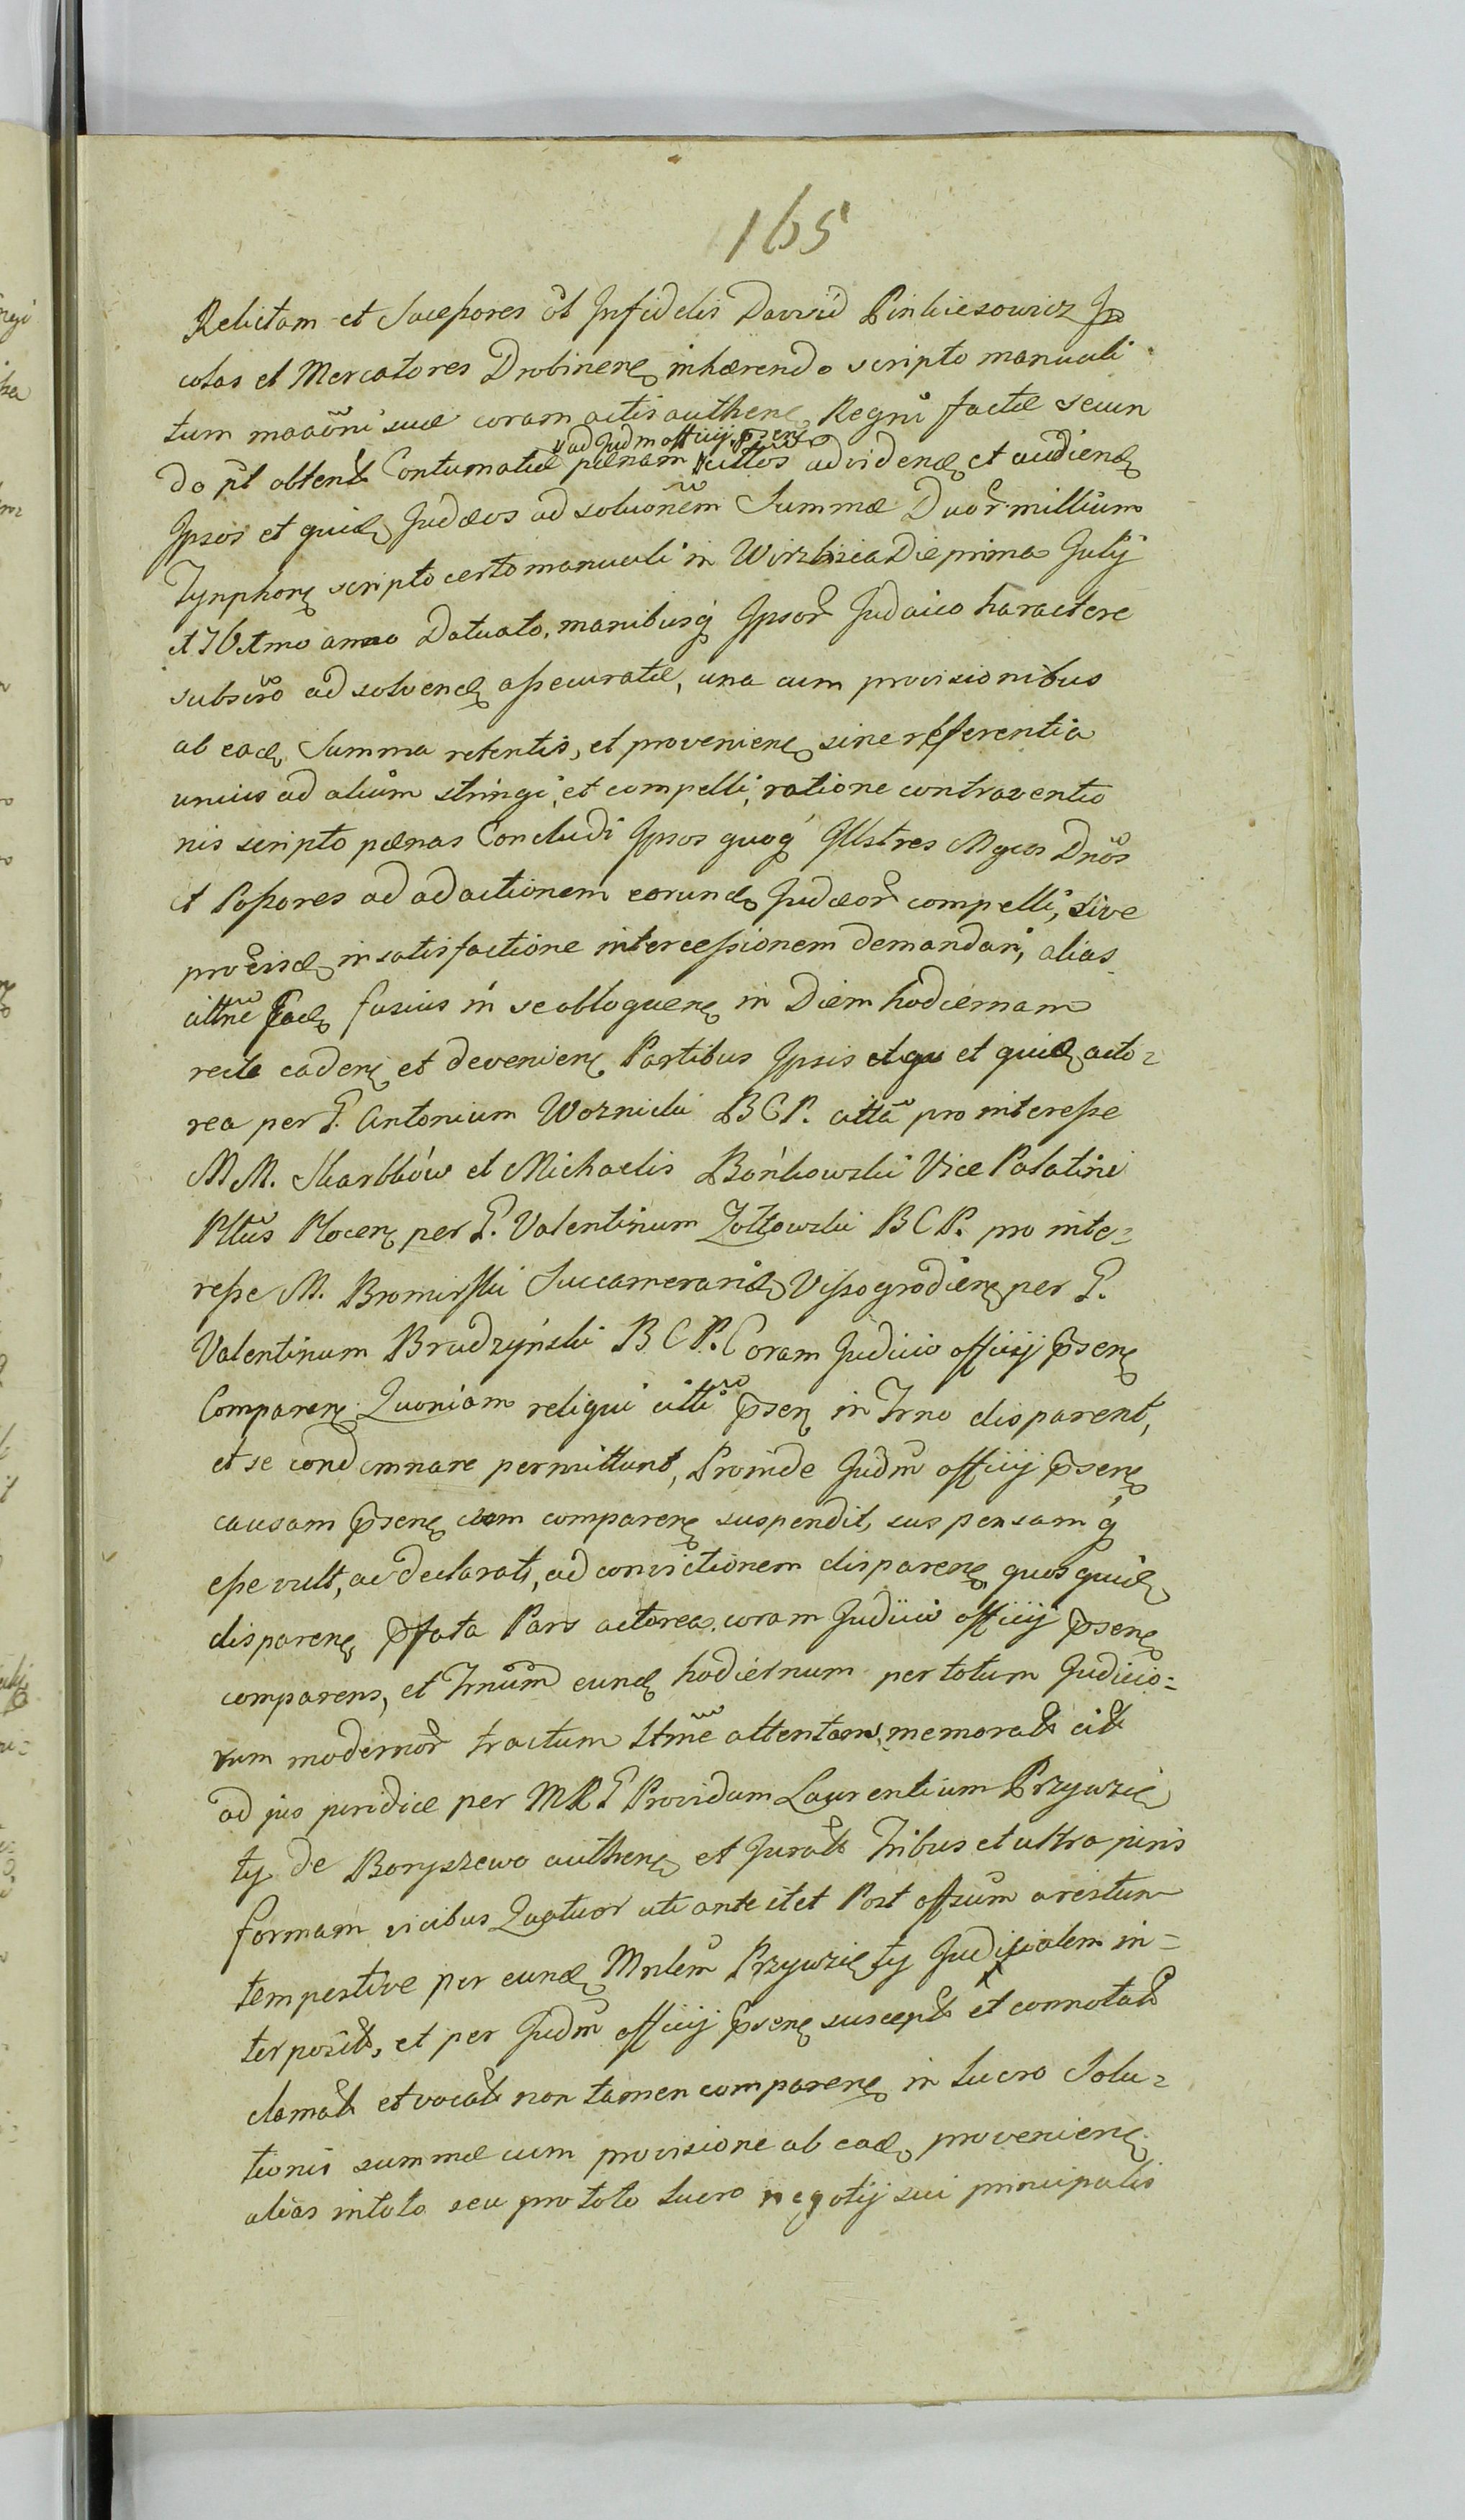 165
Relictam et Sucessores ol Infidelis Dawid Pinkiesowicz In
colas et Mercatores Drobinenς inhærendo scripto manuali
tum maaõni suæ coram actis authenς Regni factæ secun
do pt obtent Contumatiæ pænam cittos ad videnꝺ et audienꝺ
ad Judm officij p̃senς
Ipsos et quiꝺ Judæos ad soluõnem Summæ Duor̃ millium
Tynphorς scripto certo manuali in Wirzbica Die prima Julij
manibusq Ipsor̃ Judaico haractere
subscr̃o ad solvenꝺ assecuratæ, una cum provisionibus
ab eaꝺ Summa retentis, et provenienς sine refferentia
unius ad alium stringi, et compelli, ratione contraventio
nis scripto pænas Concludi Ipsos quoq Illstres Mgcos Dnõs
et Possores ad adactionem eorunꝺ Judæor̃ compelli, sive
in satisfactione intercessionem demandari, alias
cittne Eaꝺ fusius in se obloquenς in Diem hodiernam
recte cadenς et devenienς Partibus Ipsis et quiꝺ acto=
rea per G. Antonium Woznicki B C P. citta pro interesse
M M. Skarbków et Michaelis Bońkowski Vice Palatini
Pltus Plocenς per G. Valentinum Zołtowski B C P. pro inte=
resse M. Bromirski Succamerariꝺ Vissogrodienς per G.
Valentinum Brudzyński B C P. Coram Judicio officij p̃senς
Comparenς. Quoniam reliqui citti p̃senς in Trno disparent,
et se condemnare permittunt, Proinde Judm officij p̃senς
causam p̃senς cum comparenς suspendit, suspensamq
esse vult, ac declarat, ad convictionem disparenς quos quiꝺ
disparenς p̃fata Pars actorea coram Judicio officij p̃senς
comparens, et Trnum eunꝺ hodiernum per totum Judicio=
rum modernor̃ tractum attentans, memorat cit
ad jus juridice per M R G Providum Laurentium Przywzię
ty de Boryszewo authenς et Jurat Tribus et ultra juris
formam vicibus Quatuor uti ante itet Post offsum arestum
tempestive per eunꝺ Mnlem Przywzięty Judicialem in=
terposit, et per Judm officij p̃senς suscept et connotat
clamat et vocat non tamen comparenς in lucro Solu=
tionis summæ cum provisione ab eaꝺ provenienς
alias in toto seu pro toto lucro negotij sui principalis